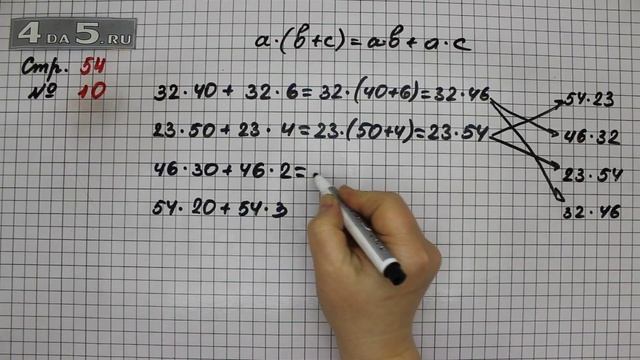 4 DA 5.RU
a·(в+с)=ав+а·с
Стр. 54
№ 10
32·40+32·6=32·(40+6)=32·46
23·50+23·4=23·(50+4)=23·54
46·30+46·2=
54·20+54·3
54·23
46·32
23·54
32·46